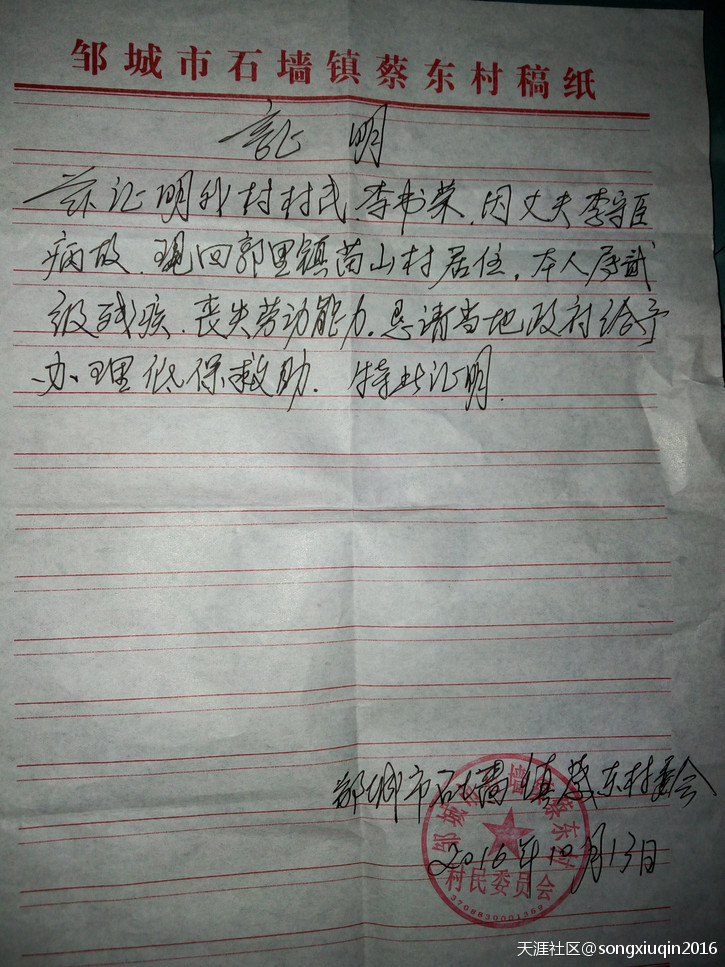 邹城市石墙镇蔡东村稿纸
证 明
兹证明我村村民.李书荣.因丈夫李守臣
病故.现回郭里镇苗山村居住.本人属贰
级残疾.丧失劳动能力.恳请当地政府给予
办理低保救助. 特此证明.
邹城市石墙镇蔡东村委会
2016年10月13日
邹城市石墙镇蔡东村
村民委员会
3708830001360
天涯社区@songxiuqin2016